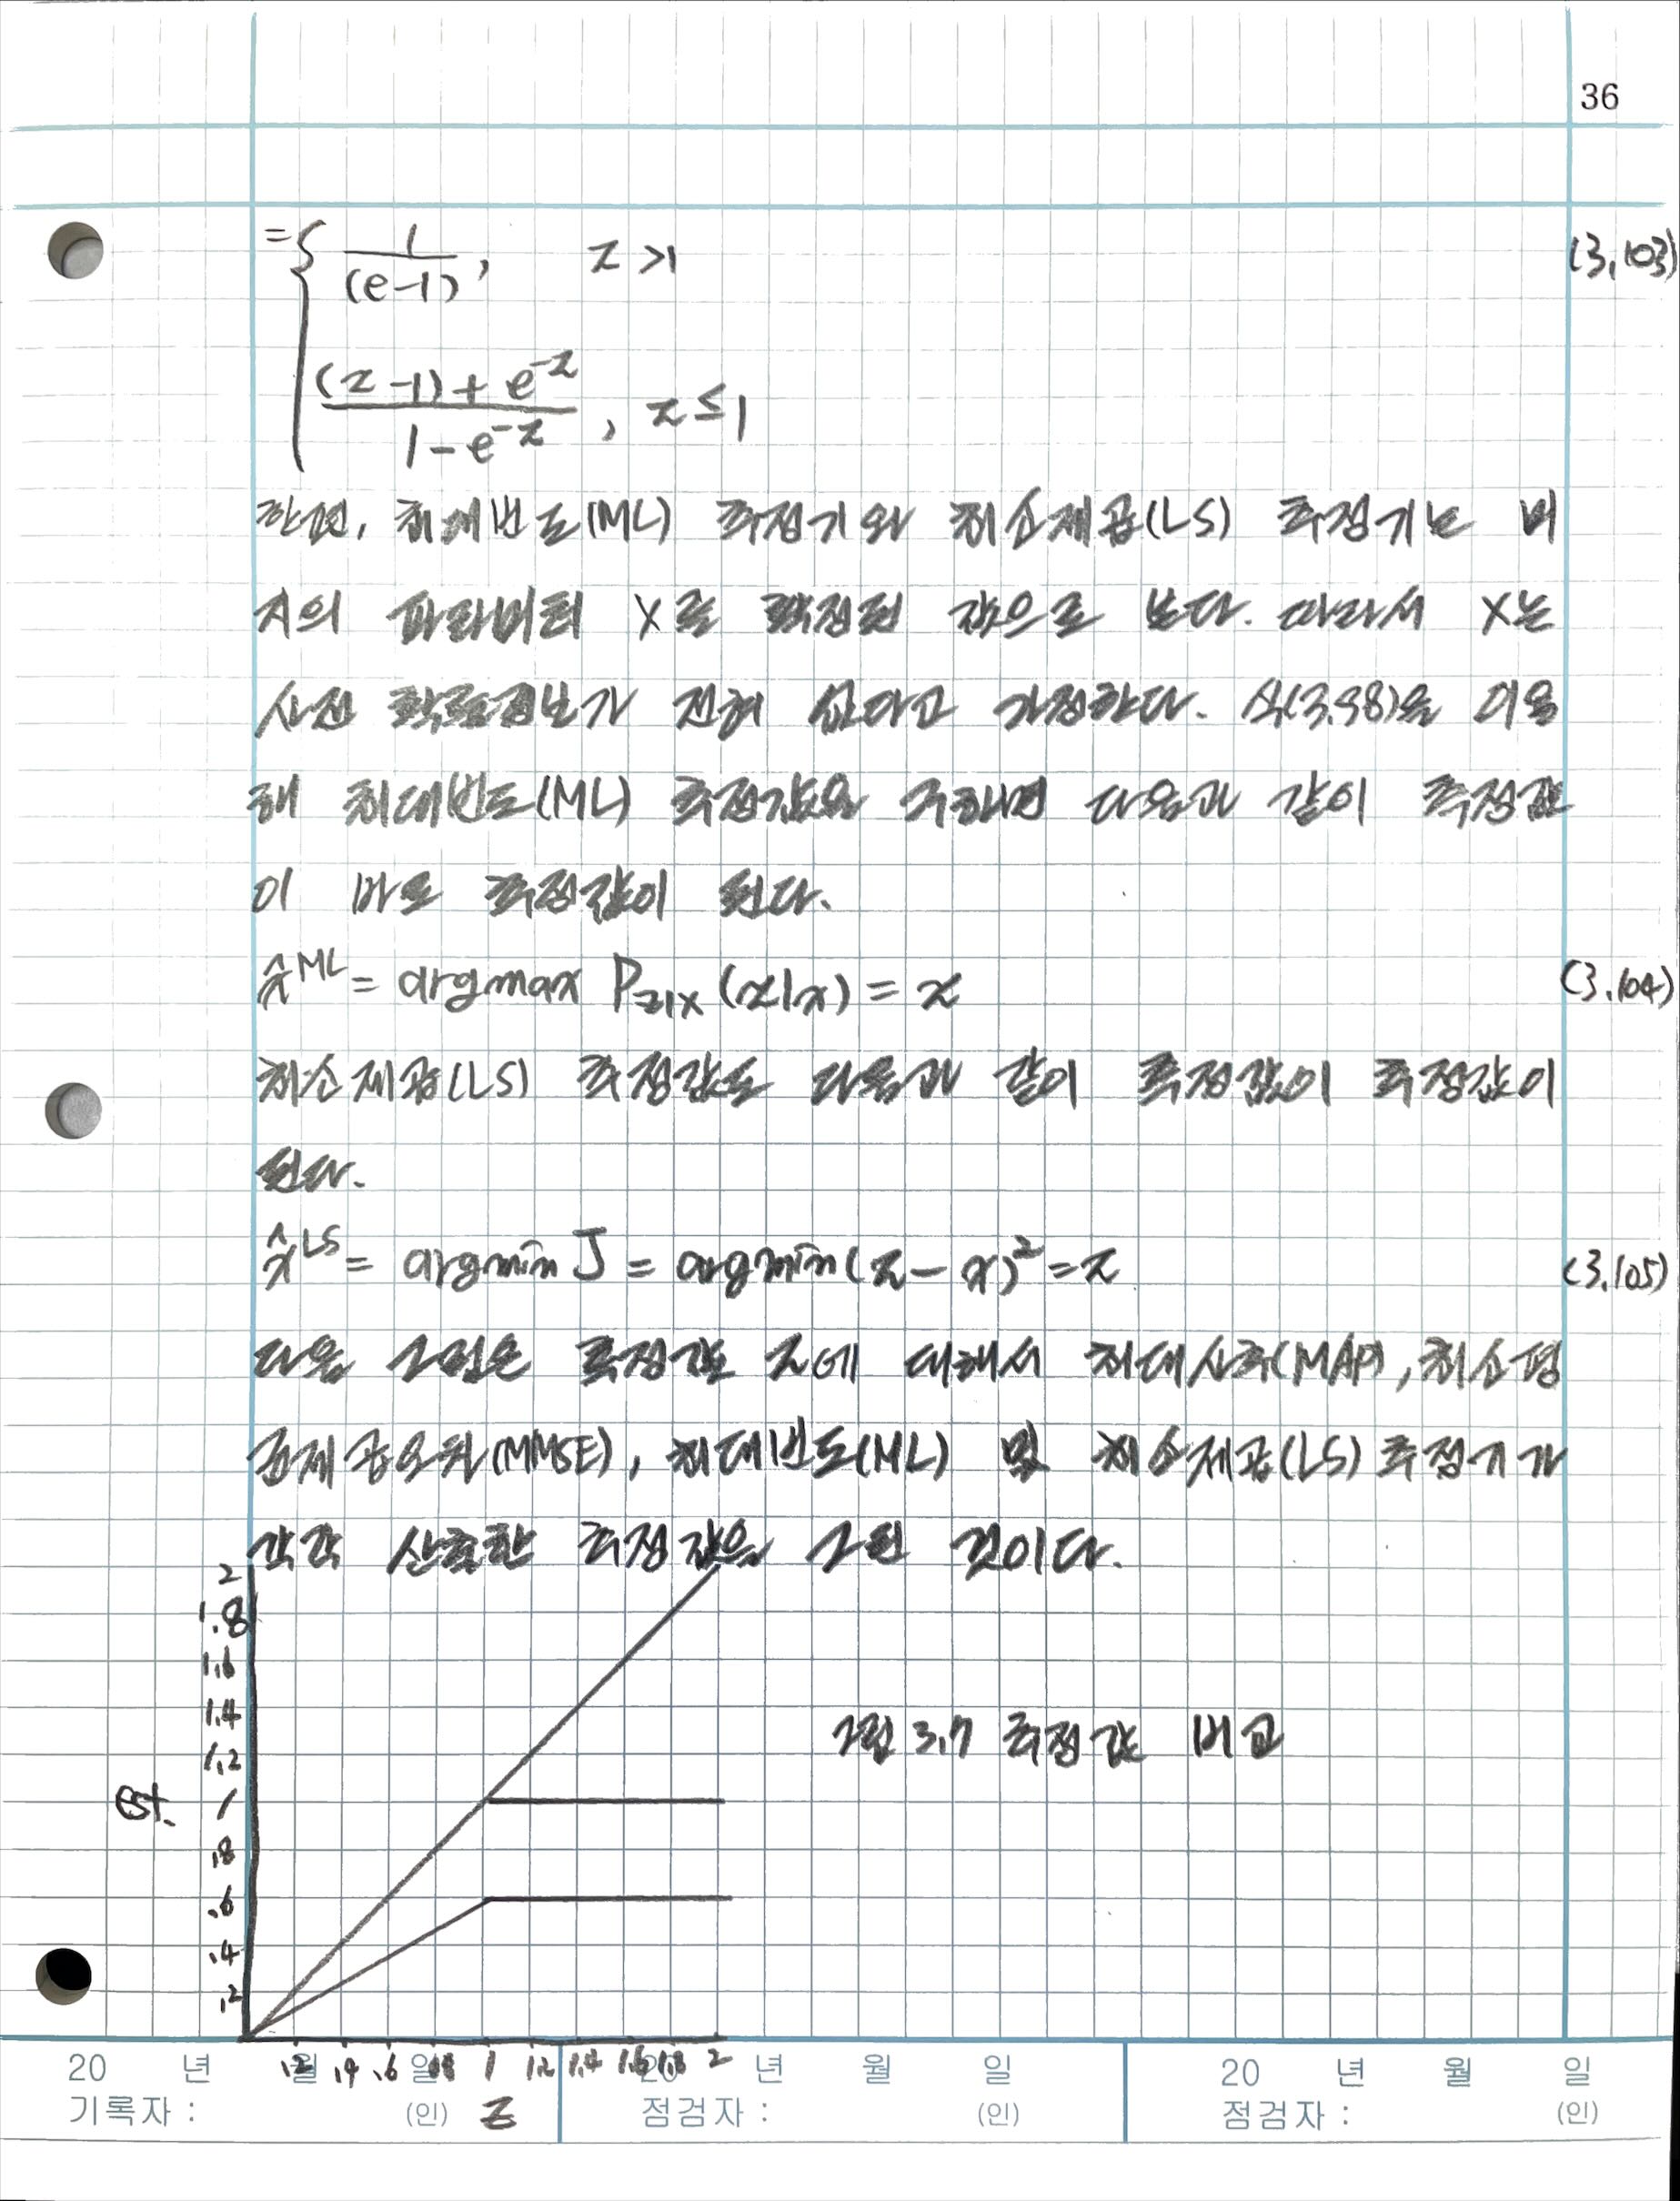 36
= { 1/(e-1), z>1 (3.103)
((z-1)+e^{-z})/(1-e^{-z}), z≤1
한편, 최대빈도(ML) 추정기와 최소제곱(LS) 추정기는 미
지의 파라미터 X를 확정된 값으로 본다. 따라서 X는
사전 확률정보가 전혀 없다고 가정한다. 식(3.98)을 이용
해 최대빈도(ML) 추정값을 구하면 다음과 같이 측정값
이 바로 추정값이 된다.
x̂^{ML} = argmax P_{Z|X}(z|x) = z (3.104)
최소제곱(LS) 추정값도 다음과 같이 측정값이 추정값이
된다.
x̂^{LS} = argmin J = argmin(z-x)^2 = z (3.105)
다음 그림은 측정값 z에 대해서 최대사후(MAP), 최소평
균제곱오차(MMSE), 최대빈도(ML) 및 최소제곱(LS) 추정기가
각각 산출한 추정값을 그린 것이다.
2
1.8
1.6
1.4
1.2
est. 1
.8
.6
.4
.2
그림 3.7 추정값 비교
.2 .4 .6 .8 1 1.2 1.4 1.6 1.8 2
z
20 년 월 일 20 년 월 일 20 년 월 일
기록자 : (인) 점검자 : (인) 점검자 : (인)